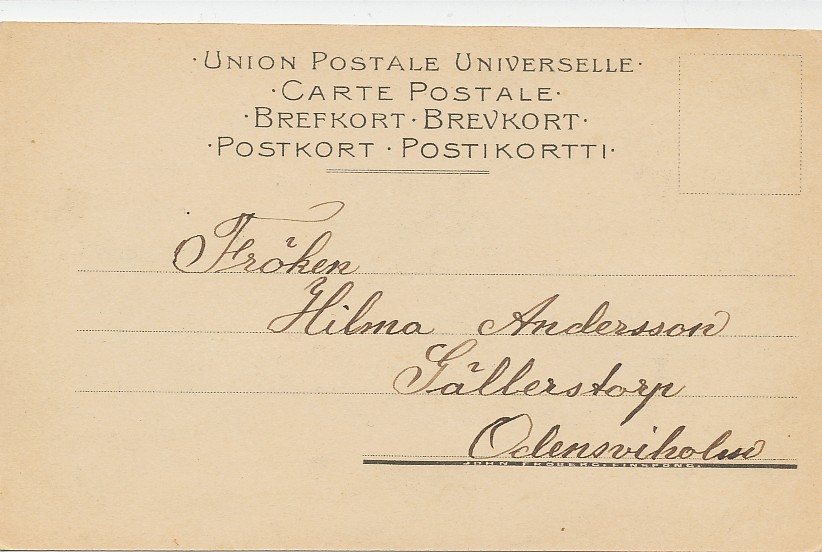 ·UNION POSTALE UNIVERSELLE·
·CARTE POSTALE·
·BREFKORT·BREVKORT·
·POSTKORT·POSTIKORTTI·
Fröken
Hilma Andersson
Gällerstorp
Odensviholm
JOHN FRÖBERG, FINSPONG.